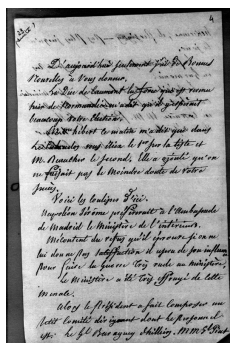 4
D'aujourd'hui seulement j'ai de bonnes
Nouvelles à vous donner.
Le Duc de Caumont la force qui est revenu
hier de Normandie m'a dit qu'il
beaucoup votre élection.
hibert ce matin m'a dit que dans
vous étiez le 1er sur la liste et
M. Beucher le second, elle a ajouté qu'on
ne faisait pas le moindre doute de votre
Voici les coulisses d'ici.
Napoléon Jérôme préférerait à l'Ambassade
de Madrid le Ministère de l'intérieur.
Mécontent du refus qu'il éprouve si on ne
lui donne pas satisfaction il usera de son influence
pour faire la guerre très rude au ministère,
le Ministère a été très effrayé de cette
menace.
Alors le Président a fait composer un
petit Comité dirigeant dont le personnel
est: le Gl Baraguay d'hilliers, M.M.